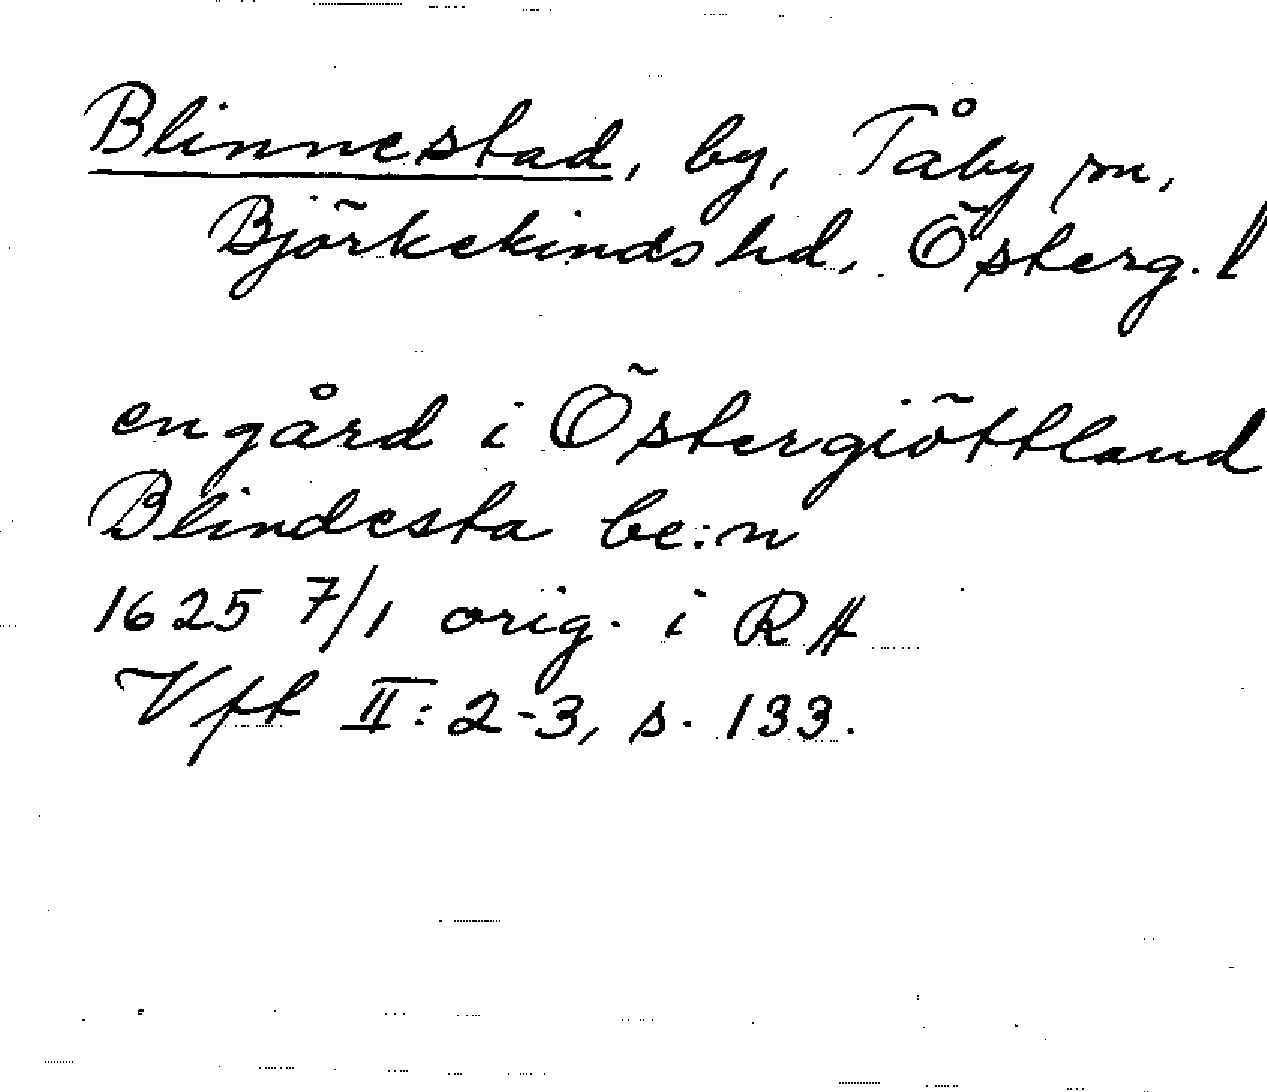 Blinnestad, by, Tåby sn,
Björkekinds hd, Österg. l
en gård i Östergiöttland
Blindesta be:n
1625 7/1 orig. i RA
Vfk II: 2-3, s. 133.